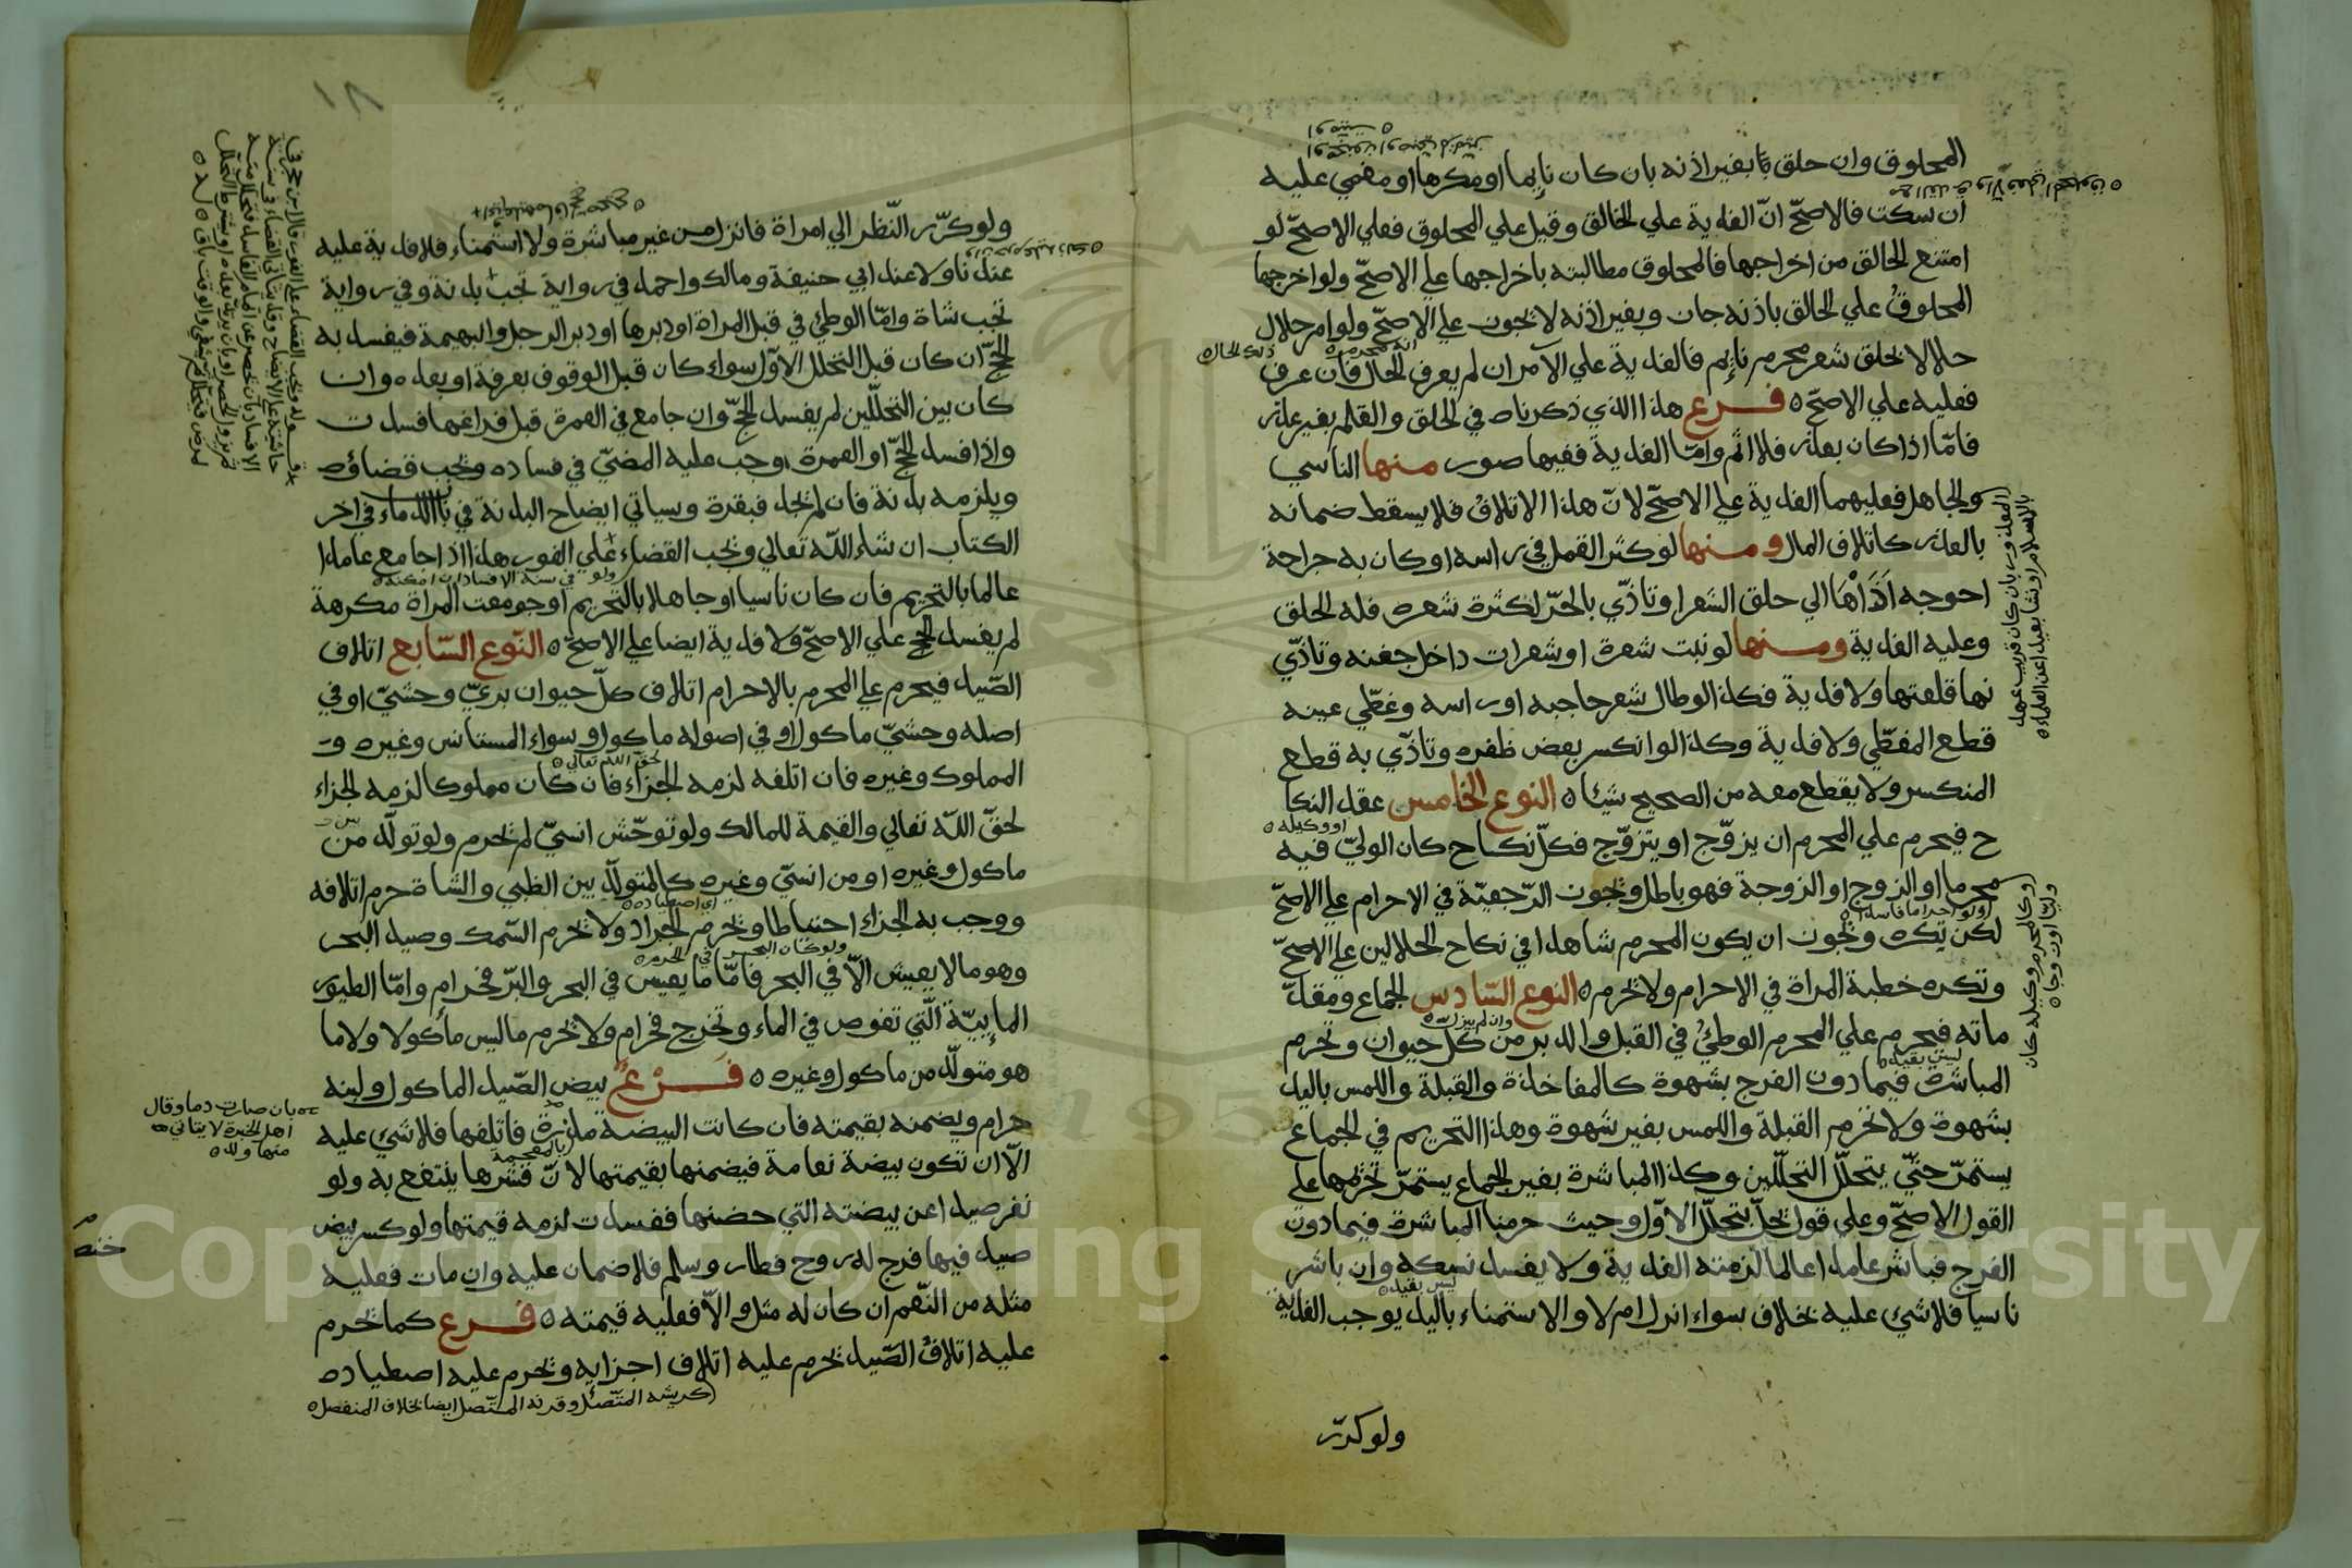 المحلوق وان حلق بغير اذنه بان كان نايما او مكرها او مغمي عليه
ان سكت فالاصحّ انّ الفدية علي الحالق وقيل علي المحلوق فعلي الاصحّ لو
امتنع الحالق من اخراجها فالمحلوق مطالبته باخراجها علي الاصحّ ولو اخرجها
المحلوق علي الحالق باذنه جاز وبغير اذنه لا يجوز علي الاصحّ ولو امر حلال
حلالا لحلق شعر محرم نايم فالفدية علي الآمر ان لم يعرف الحال فان عرف
انه محرم
ذلك الحال
فعليه علي الاصحّ فرع هذا الذي ذكرناه في الحلق والقلم بغير عذر
فامّا اذا كان بعذر فلا اثم وامّا الفدية ففيها صور منها الناسي
والجاهل فعليهما الفدية علي الاصحّ لانّ هذا الاتلاف فلا يسقط ضمانه
بالعذر كاتلاف المال ومنها لو كثر القمل في راسه او كان به جراحة
احوجه اَذَاهَا الي حلق الشعر او تاذّي بالحرّ لكثرة شعره فله الحلق
وعليه الفدية ومنها لو نبت شعرة او شعرات داخل جفنه وتاذّي
بها قلعتها ولا فدية فكذا لو طال شعر حاجبه او راسه وغطّي عينه
قطع المغطّي ولا فدية وكذا لو انكسر بعض ظفره وتاذّي به قطع
المنكسر ولا يقطع معه من الصحيح شيئا النوع الخامس عقد النكا
او وكيله
ح فيحرم علي المحرم ان يزوّج او يتزوّج فكلّ نكاح كان الوليّ فيه
محرما او الزوج او الزوجة فهو باطل وتجوز الرّجعيّة في الاحرام علي الاصحّ
ولو احراما فاسدا
لكن تكره ويجوز ان يكون المحرم شاهدا في نكاح الحلالين علي الاصحّ
وتكره خطبة المراة في الاحرام ولا تحرم النوع السّادس الجماع ومقدّ
وان لم ينزل
ماته فيحرم علي المحرم الوطئ في القبل والدبر من كل حيوان وتحرم
ليس بقيد
المباشرة فيما دون الفرج بشهوة كالمفاخذة والقبلة واللمس باليد
بشهوة ولا تحرم القبلة واللمس بغير شهوة وهذا التحريم في الجماع
يستمرّ حتّي يتحلّل التحلّلين وكذا المباشرة بغير الجماع يستمرّ تحريمها علي
القول الاصحّ وعلي قول تحلّ بتحلّل الاوّل وحيث حرمنا المباشرة فيما دون
الفرج فباشر عامدا عالما لزمته الفدية ولا يفسد نسكه وان باشر
ليس بقيد
ناسيا فلا شئ عليه بخلاف سواء انزل ام لا والاستمناء باليد يوجب الفدية
ولو كرّر
المعذور بان كان قريب عهد
بالاسلام او نشا بعيدا عن العلماء
١٨
ولو كرّر النّظر الي امراة فانزل من غير مباشرة ولا استمناء فلا فدية عليه
عندنا ولا عند ابي حنيفة ومالك واحمد في رواية تجب بدنة وفي رواية
تجب شاة وامّا الوطئ في قبل المراة او دبرها او دبر الرجل والبهيمة فيفسد به
الحجّ ان كان قبل التحلل الاوّل سواء كان قبل الوقوف بعرفة او بعده وان
كان بين التحلّلين لم يفسد الحجّ وان جامع في العمرة قبل فراغها فسدت
واذا فسد الحجّ او العمرة وجب عليه المضيّ في فساده ويجب قضاؤه
ويلزمه بدنة فان لم يجد فبقرة وسياتي ايضاح البدنة في باب الدماء في اخر
الكتاب ان شاء اللّه تعالي ويجب القضاء علي الفور هذا اذا جامع عامدا
ولو في سنة الافساد ان امكنه
عالما بالتحريم فان كان ناسيا او جاهلا بالتحريم او جومعت المراة مكرهة
لم يفسد الحج علي الاصحّ ولا فدية ايضا علي الاصحّ النّوع السّابع اتلاف
الصّيد فيحرم علي المحرم بالاحرام اتلاف كلّ حيوان بريّ وحشيّ او في
اصله وحشيّ ماكول او في اصوله ماكول وسواء المستانس وغيره و
لحقّ اللّه تعالي
المملوك وغيره فان اتلفه لزمه الجزاء فان كان مملوكا لزمه الجزاء
لحقّ اللّه تعالي والقيمة للمالك ولو توحّش انسيّ لم يحرم ولو تولّد من
ماكول وغيره او من انسيّ وغيره كالمتولّد بين الظبي والشاة حرم اتلافه
اي اصطياده
ووجب به الجزاء احتياطا ويحرم الجراد ولا يحرم السّمك وصيد البحر
ولو كان البحر في الحرم
وهو ما لا يعيش الّا في البحر فامّا ما يعيش في البحر والبرّ فحرام وامّا الطيور
المايـيّة الّتي تغوص في الماء وتخرج فحرام ولا يحرم ما ليس ماكولا ولا ما
هو متولّد من ماكول وغيره فَرْعٌ بيض الصّيد الماكول ولبنه
حرام ويضمنه بقيمته فان كانت البيضة مذرة فاتلفها فلا شئ عليه
بالمعجمة
الّا ان تكون بيضة نعامة فيضمنها بقيمتها لانّ قشرها ينتفع به ولو
نفر صيدا عن بيضته التي حضنها ففسدت لزمه قيمتها ولو كسر بيض
صيد فيها فرج له روح فطار وسلم فلا ضمان عليه وان مات فعليه
مثله من النّعم ان كان له مثل والّا فعليه قيمته فرع كما يحرم
عليه اتلاف الصّيد يحرم عليه اتلاف اجزايه ويحرم عليه اصطياده
كريشه المتّصل وقرنه المتّصل ايضا بخلاف المنفصل
بان صارت دما وقال
اهل الخبرة لا يتاتي
منها ولد
Copyright © King Saud University
1957